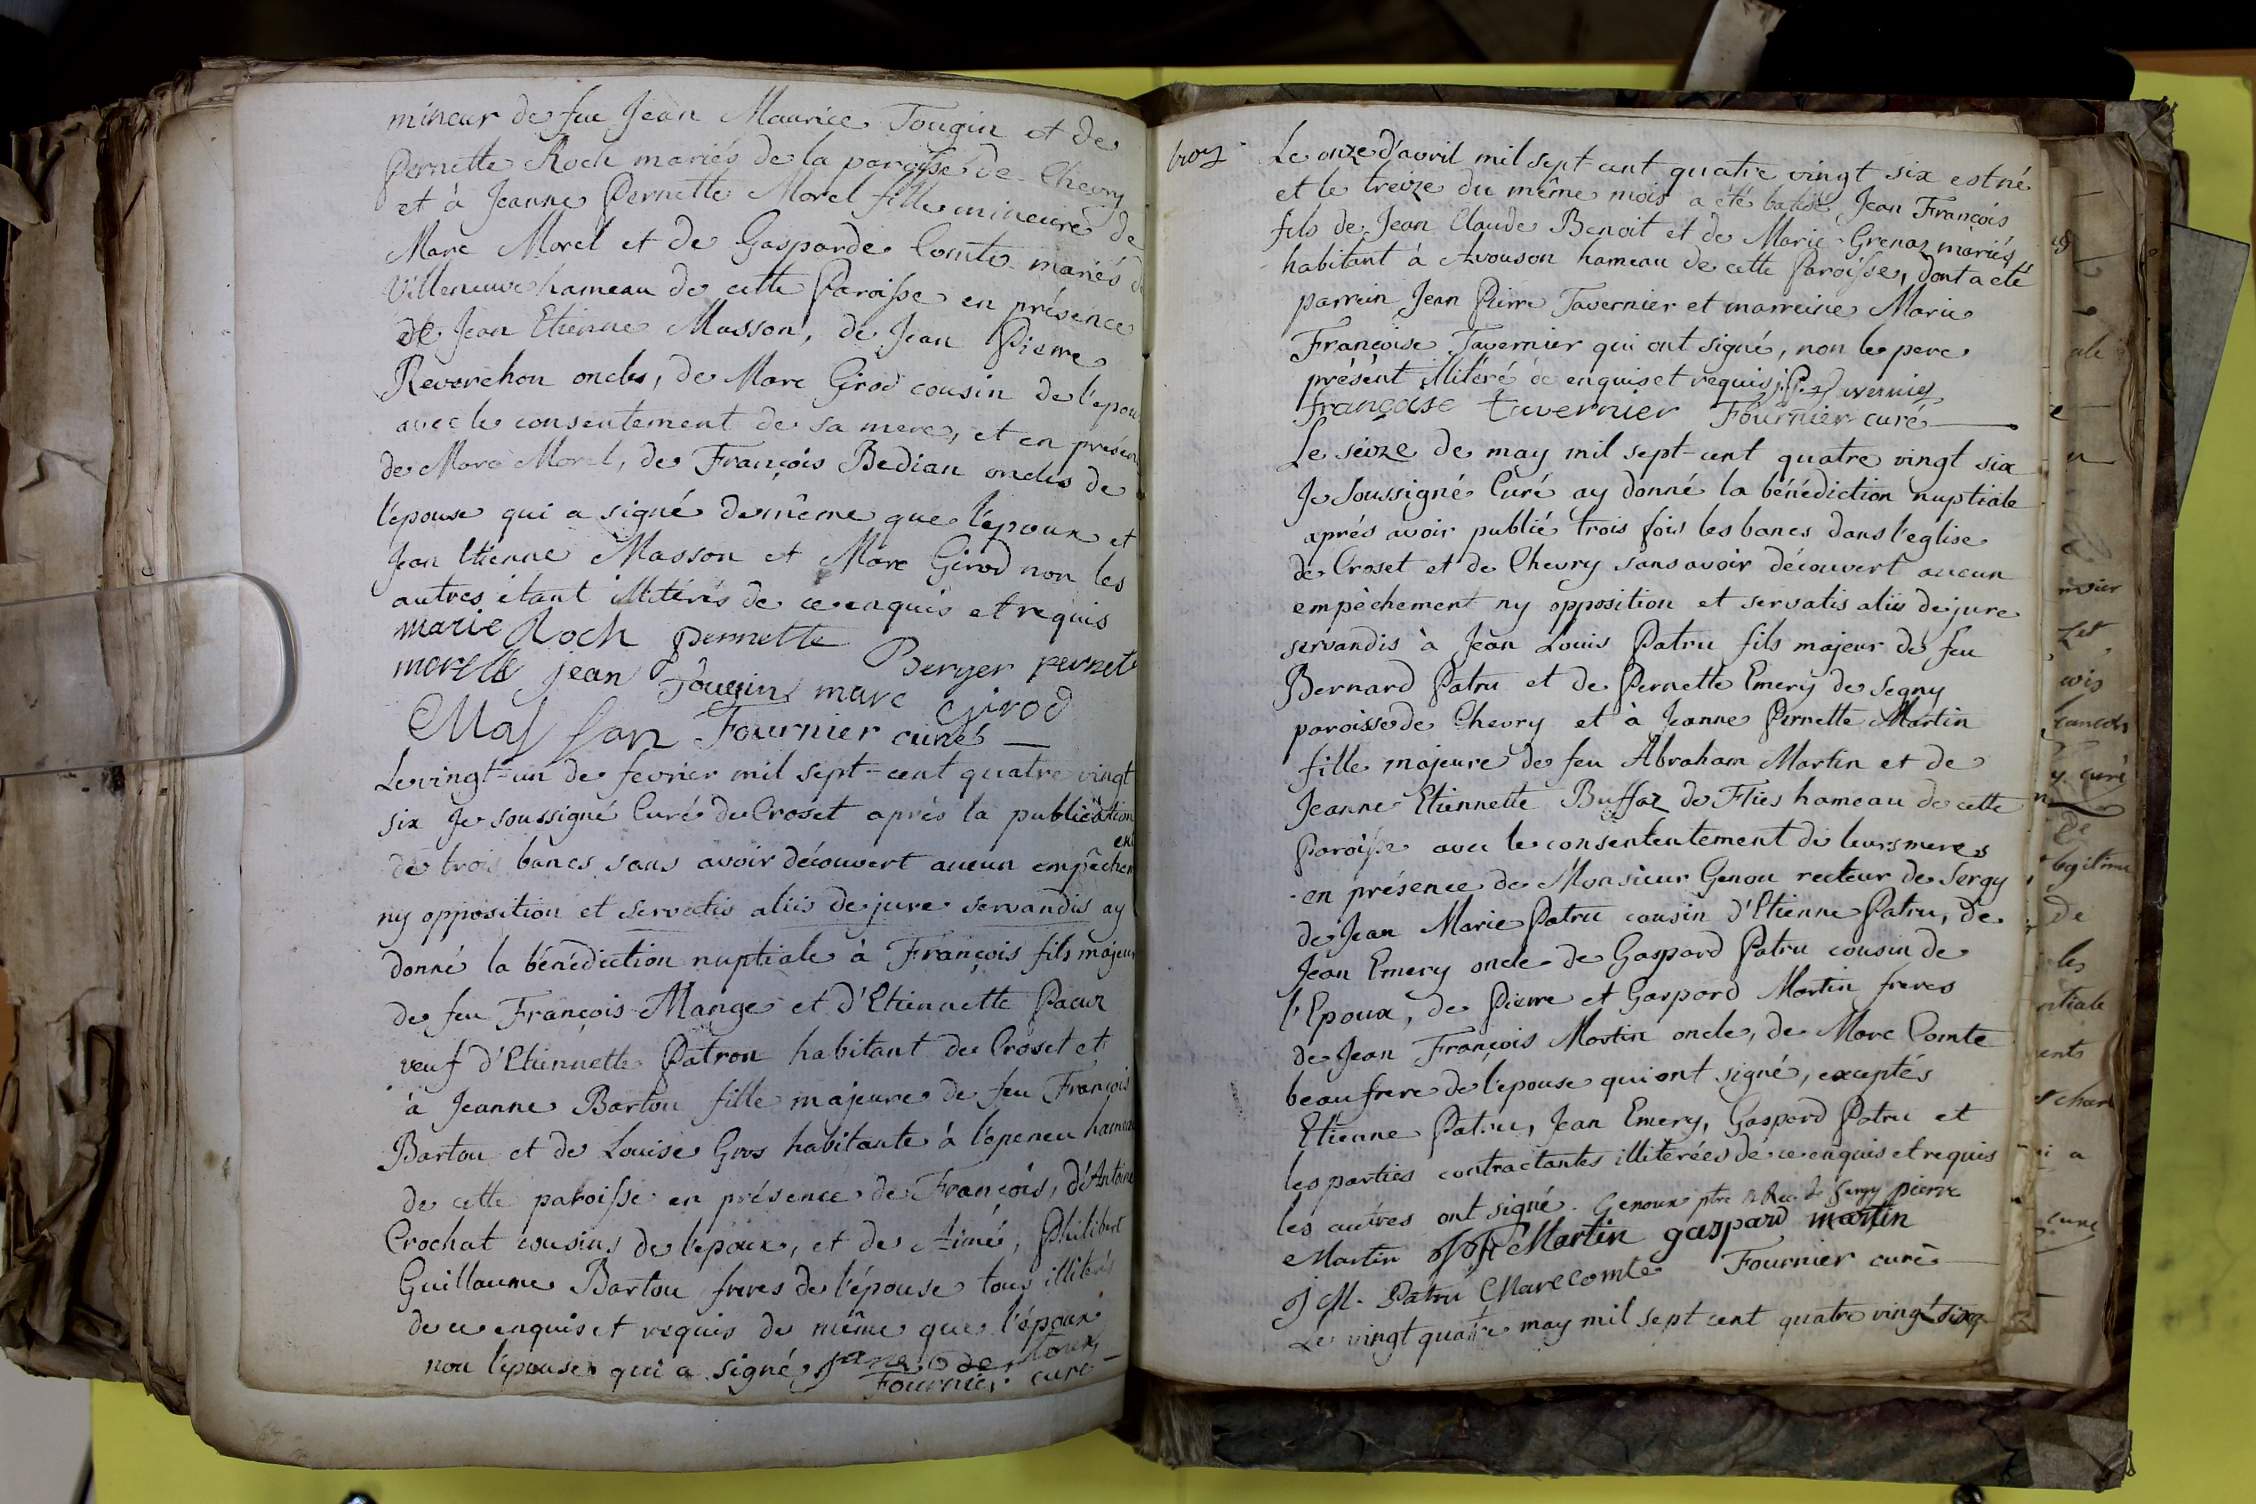 mineur de feu Jean Maurice Tougin et de
Pernette Roch mariés de la paroisse de Chevry
et à Jeanne Pernette Morel fille mineure de
Marc Morel et de Gasparde Comte mariés de
Villeneuve hameau de cette Paroisse en présence
de Jean Etienne Masson, de Jean Pierre
Reverchon oncles, de Marc Girod cousin de l'epou
avec le consentement de sa mere, et en présen
de Marc Morel, de François Bedian oncles de
l'epouse qui a signé de même que l'epoux et
Jean Etienne Masson et Marc Girod non les
autres étant illitérés de ce enquis et requis
marie Roch pernette Berger pernete
morelle jean Tougin marc Girod
Masson Fournier curé
Le vingt-un de fevrier mil sept-cent quatre vingt
six Je soussigné Curé du Croset après la publication
de trois bancs sans avoir découvert aucun empêchem
ny opposition et servatis aliis de jure servandis ay
donné la bénédiction nuptiale à François fils majeur
de feu François Mange et d'Etiennette Pacur
veuf d'Etiennette Patron habitant du Croset et
à Jeanne Bartou fille majeure de feu François
Bartou et de Louise Gros habitante à l'epeneu hameau
de cette paroisse en présence de François, d'Antoine
Crochat cousins de l'epoux, et de Aimé, Philibert
Guillaume Bartou freres de l'épouse tous illitérés
de ce enquis et requis de même que l'époux
non l'epouse qui a signé
Fournier curé
Le onze d'avril mil sept cent quatre vingt six est né
et le treize du même mois a été batisé Jean François
fils de Jean Claude Benoit et de Marie Grenaz mariés
habitant à Avouson hameau de cette Paroisse, dont a eté
parrein Jean Pierre Tavernier et marreine Marie
Françoise Tavernier qui ont signé, non le pere
présent illitéré de enquis et requis j. P. Tavernier
françoise tavernier Fournier curé
Le seize de may mil sept-cent quatre vingt six
Je Soussigné Curé ay donné la bénédiction nuptiale
aprés avoir publié trois fois les bancs dans l'eglise
de Croset et de Chevry sans avoir découvert aucun
empêchement ny opposition et servatis aliis de jure
servandis à Jean Louis Patru fils majeur de feu
Bernard Patru et de Pernette Emery de Segny
paroisse de Chevry et à Jeanne Pernette Martin
fille majeure de feu Abraham Martin et de
Jeanne Etiennette Buffaz de Flies hameau de cette
Paroisse avec le consententement de leurs meres
en présence de Monsieur Genou recteur de Sergy
de Jean Marie Patru cousin d'Etienne Patru, de
Jean Emery oncle de Gaspard Patru cousin de
l'Epoux, de Pierre et Gaspard Martin freres
de Jean François Martin oncle, de Marc Comte
beaufrere de l'epouse qui ont signé, exceptés
Etienne Patru, Jean Emery, Gaspard Patru et
les parties contractantes illiterées de ce enquis et requis
les autres ont signé. Genoux ptre Rec. de Sergy pierre
Martin J f Martin gaspard martin
J M. Patru Marc Comte Fournier curé
Le vingt quatre may mil sept cent quatre vingt six